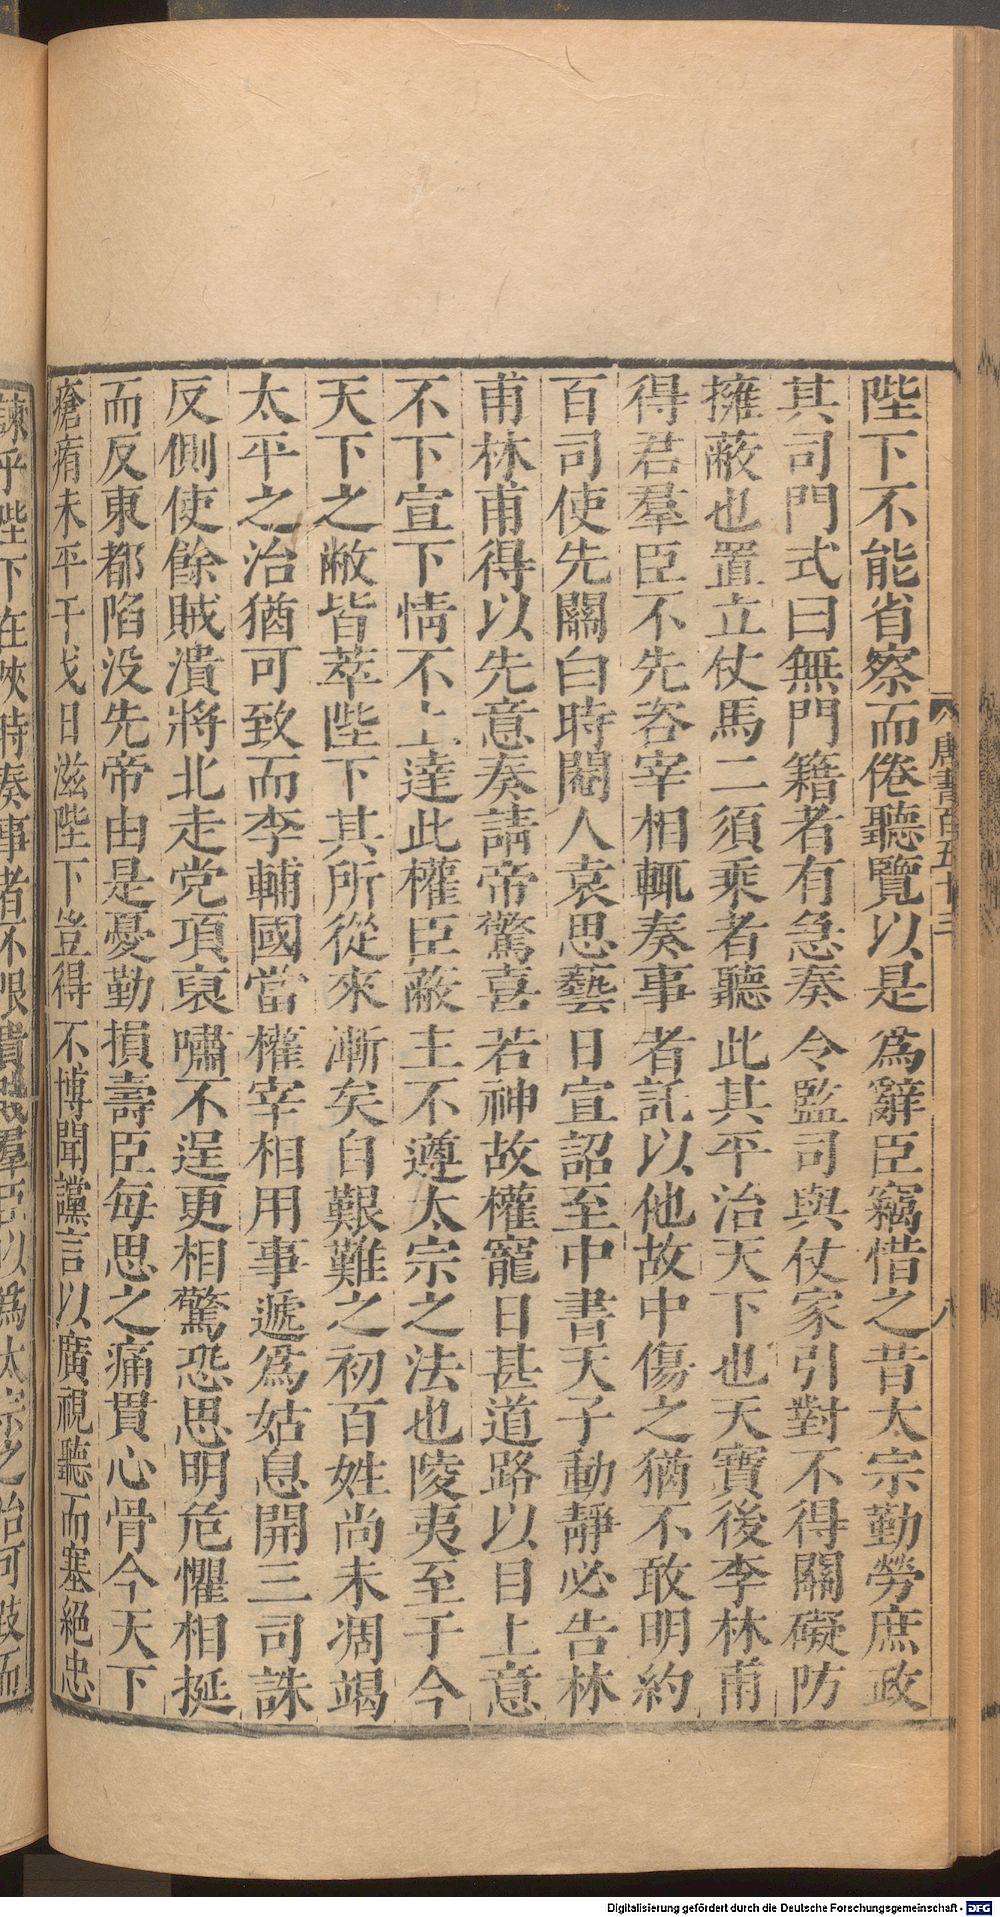 陛下不能省察而倦聽覽以是爲辭臣竊惜之昔太宗勤勞庶政
其司門式曰無門籍者有急奏令監司與仗家引對不得關礙防
擁蔽也置立仗馬二須乘者聽此其平治天下也天寶後李林甫
得君羣臣不先咨宰相輒奏事者託以他故中傷之猶不敢明約
百司使先關白時閹人袁思藝日宣詔至中書天子動靜必告林
甫林甫得以先意奏請帝驚喜若神故權寵日甚道路以目上意
不下宣下情不上達此權臣蔽主不遵太宗之法也陵夷至于今
天下之敝皆萃陛下其所從來漸矣自艱難之初百姓尚未凋竭
太平之治猶可致而李輔國當權宰相用事遞爲姑息開三司誅
反側使餘賊潰將北走党項裒嘯不逞更相驚恐思明危懼相挻
而反東都陷没先帝由是憂勤損壽臣每思之痛貫心骨今天下
瘡痏未平干戈日滋陛下豈得不博聞讜言以廣視聽而塞絕忠
諫乎陛下在陝時奏事者不限貴賤羣臣以爲太宗之治可跂而
唐書百五十三
八
Digitalisierung gefördert durch die Deutsche Forschungsgemeinschaft - DFG